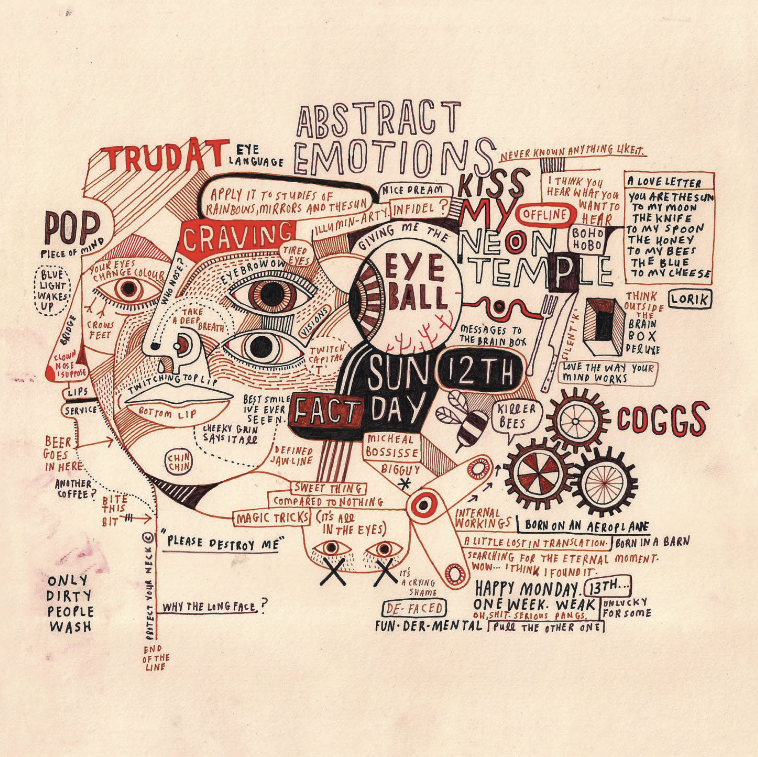 ABSTRACT
EMOTIONS
TRUDAT
EYE
LANGUAGE
NEVER KNOWN ANYTHING LIKE IT.
APPLY IT TO STUDIES OF
RAINBOWS, MIRRORS AND THE SUN
NICE DREAM
ILLUMIN-ARTY.
INFIDEL?
KISS
MY
NEON
TEMPLE
OFFLINE
I THINK YOU
HEAR WHAT YOU
WANT TO
HEAR
BOHO
HOBO
A LOVE LETTER
YOU ARE THE SUN
TO MY MOON
THE KNIFE
TO MY SPOON
THE HONEY
TO MY BEES
THE BLUE
TO MY CHEESE
POP
PIECE OF MIND
CRAVING
TIRED
EYES
GIVING ME THE
EYE
BALL
BLUE
LIGHT
WAKES
UP
YOUR EYES
CHANGE COLOUR
CROWS
FEET
BRIDGE
CLOWN
NOSE
I SUPPOSE
WHO NOSE?
EYEBROWOW
TAKE
A DEEP
BREATH
VISIONS
TWITCH
CAPITAL
T
MESSAGES TO
THE BRAIN BOX
SILENT 'K'
THINK
OUTSIDE
THE
BRAIN
BOX
DELUXE
LORIK
LOVE THE WAY YOUR
MIND WORKS
LIPS
SERVICE
TWITCHING TOP LIP
BOTTOM LIP
BEST SMILE
I'VE EVER
SEEN.
CHEEKY GRIN
SAYS IT ALL
FACT
SUN
DAY
12TH
KILLER
BEES
COGGS
BEER
GOES
IN HERE
CHIN
CHIN
DEFINED
JAW-LINE
MICHEAL
BOSSISSE
BIGGUY
ANOTHER
COFFEE?
BITE
THIS
BIT
SWEET THING
COMPARED TO NOTHING
MAGIC TRICKS
(IT'S ALL
IN THE EYES)
INTERNAL
WORKINGS
BORN ON AN AEROPLANE
A LITTLE LOST IN TRANSLATION.
BORN IN A BARN
SEARCHING FOR THE ETERNAL MOMENT.
WOW... I THINK I FOUND IT.
"PLEASE DESTROY ME"
PROTECT YOUR NECK ©
WHY THE LONG FACE?
END
OF THE
LINE
ONLY
DIRTY
PEOPLE
WASH
IT'S
A CRYING
SHAME
DE-FACED
FUN·DER·MENTAL
HAPPY MONDAY.
13TH...
ONE WEEK. WEAK
UNLUCKY
FOR SOME
OH, SHIT. SERIOUS PANGS.
PULL THE OTHER ONE